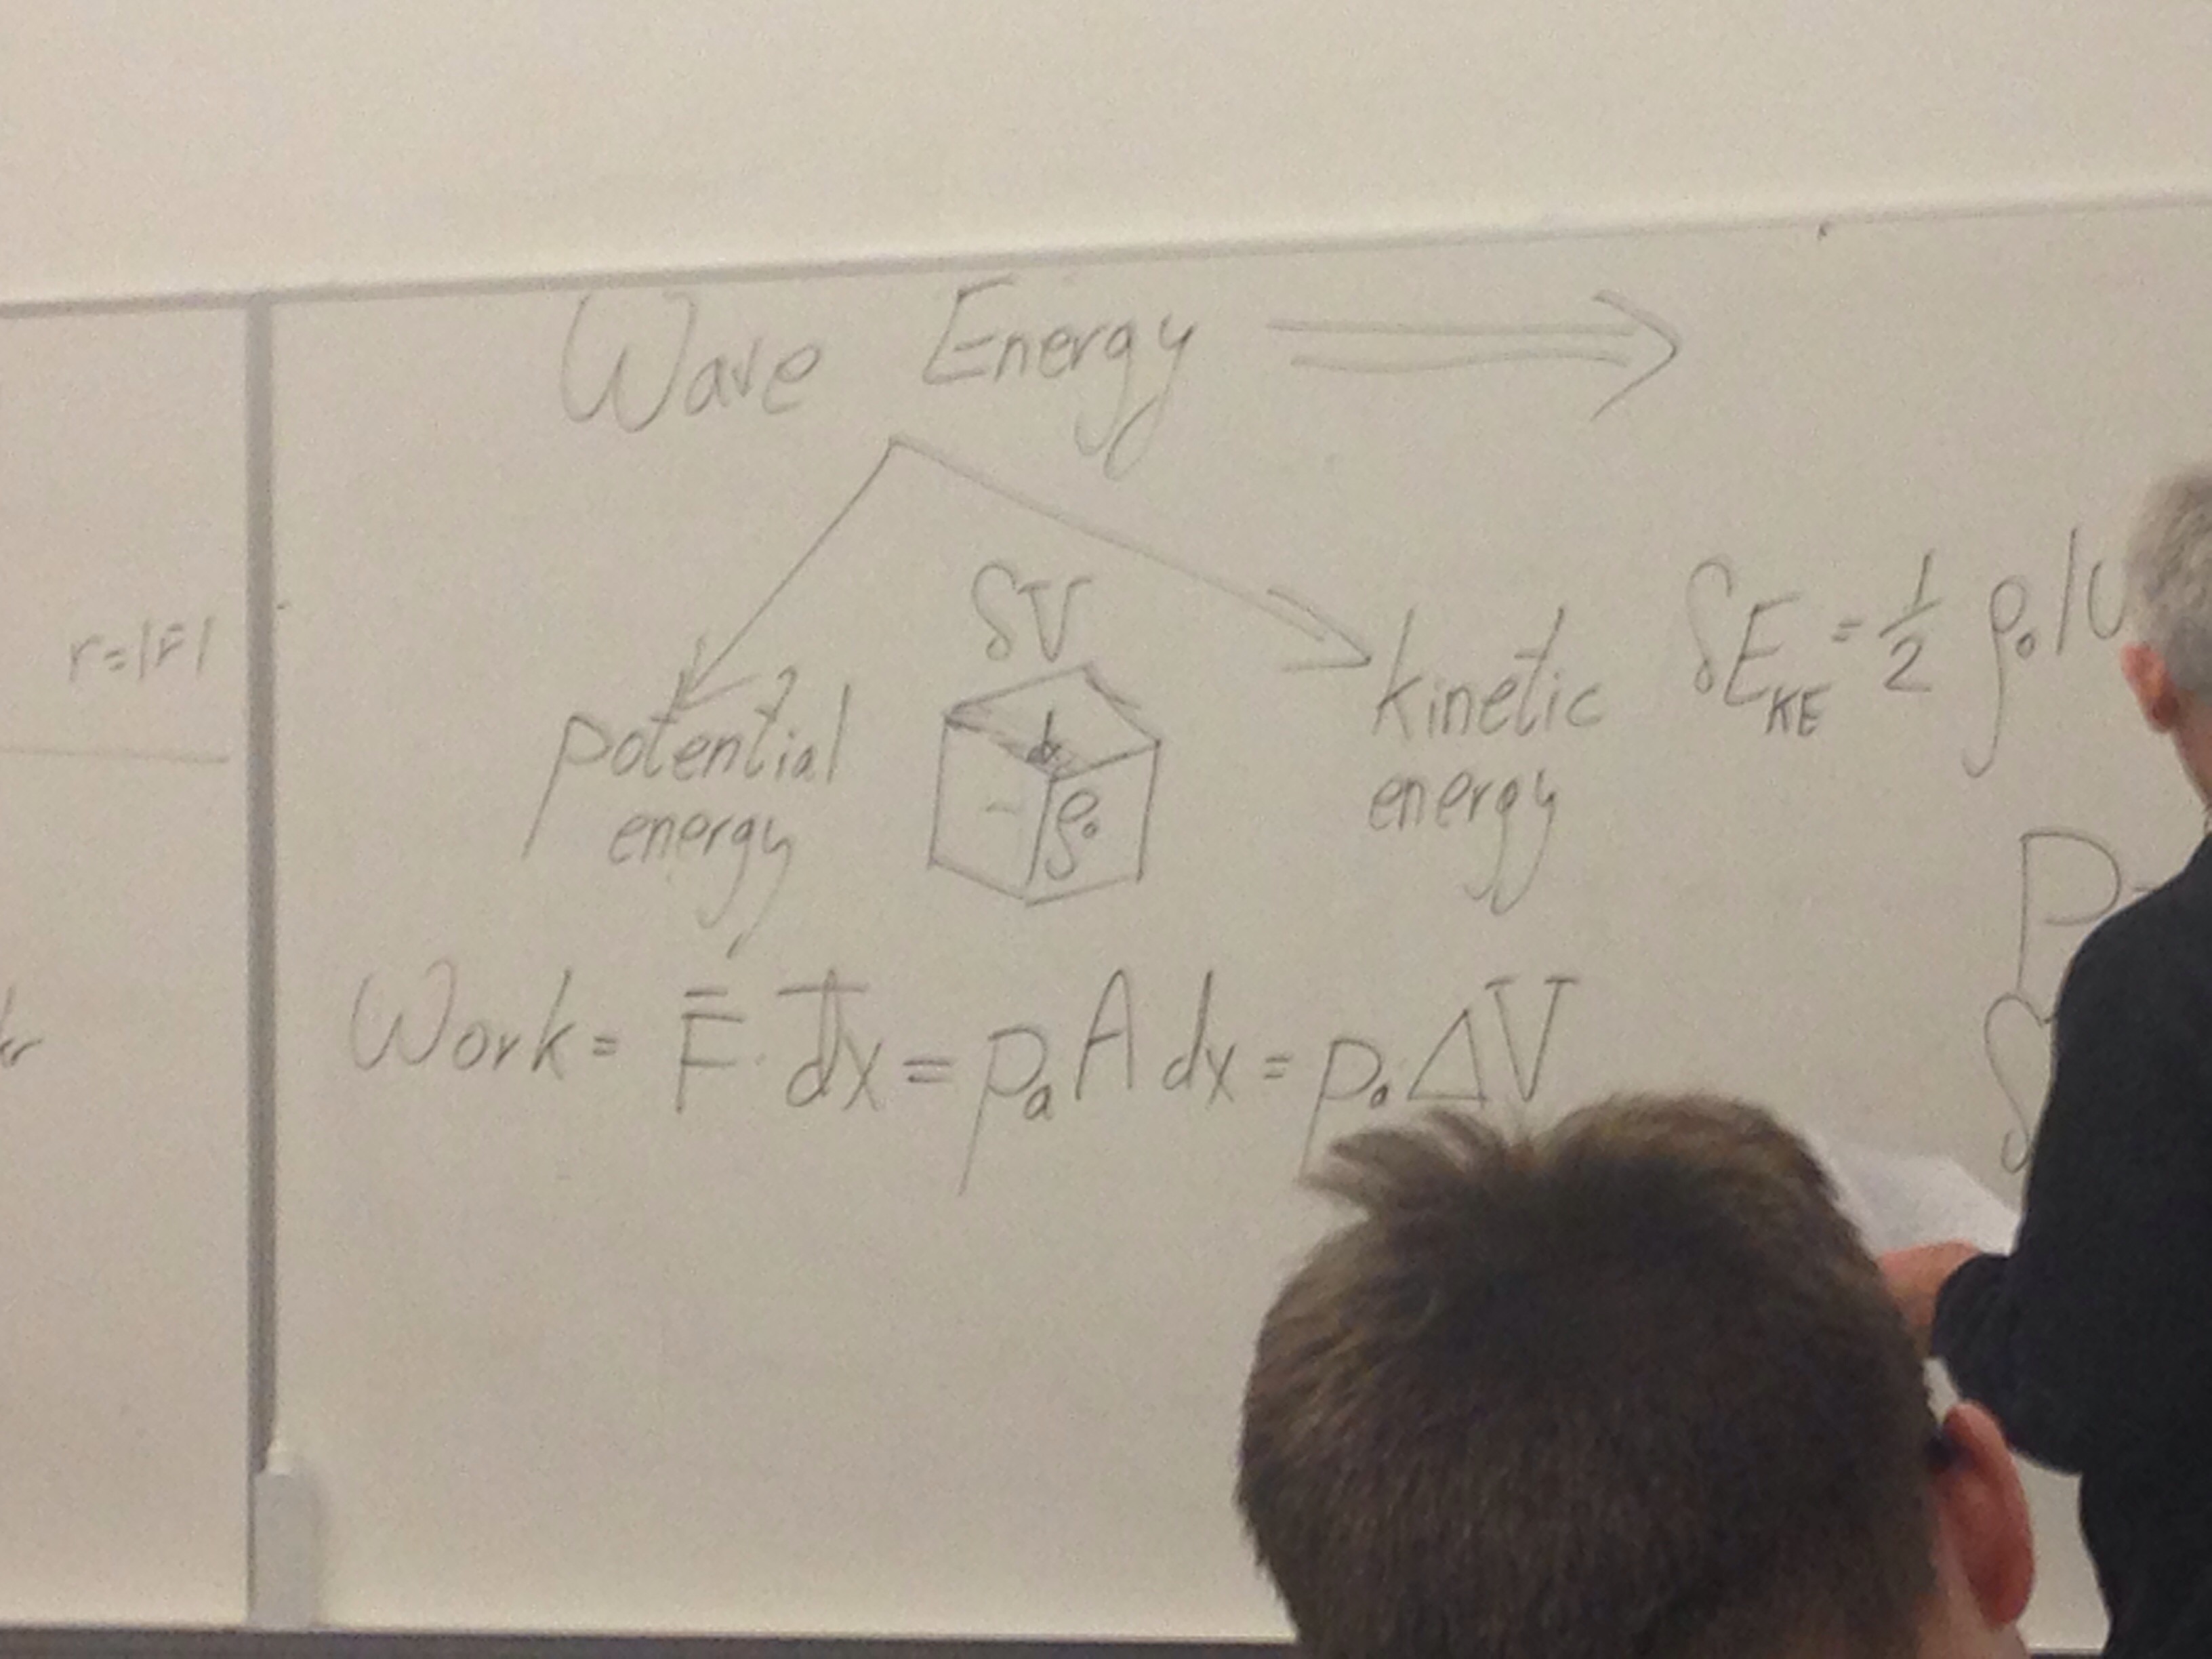 Wave Energy ⟹
r=|r̄|
δV
potential
energy
ρ₀
kinetic
energy
δE_KE = 1/2 ρ₀|U
P
Work = F̄ · d̄x = pₐ A dx = pₐ ΔV